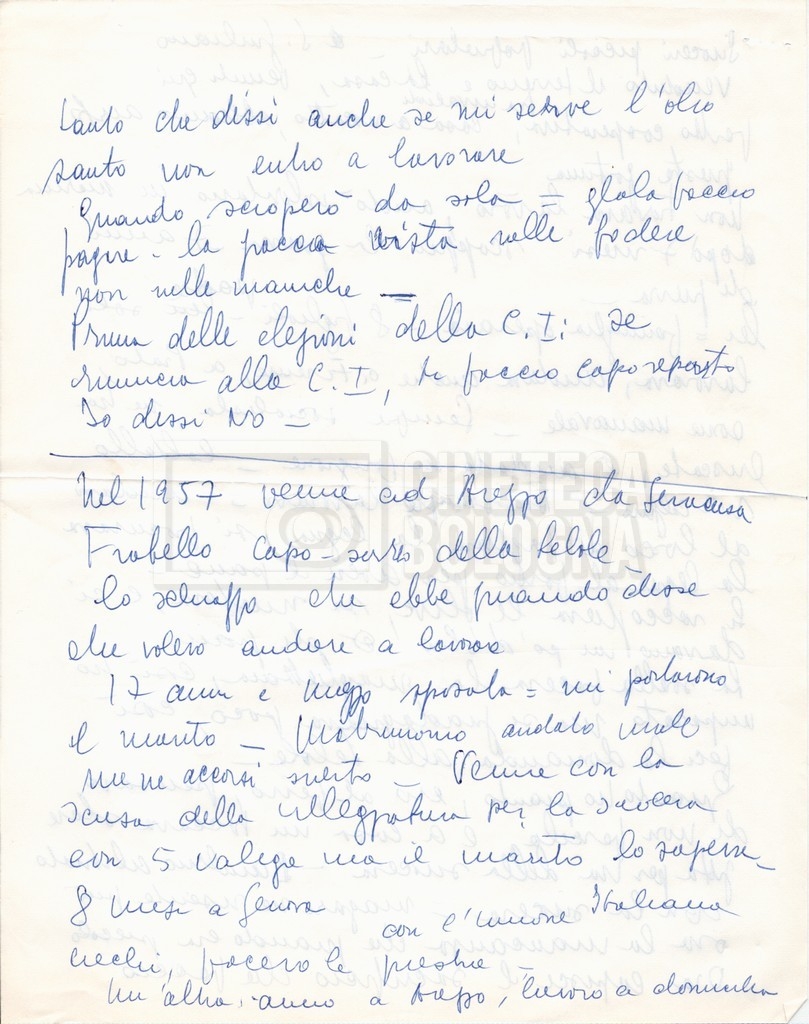 tanto che dissi anche se mi serve l'olio
santo non entro a lavorare
Quando scioperò da sola = gliela faccio
pagare - la faccia vista nelle federe
non nelle maniche —
Prima delle elezioni della C.I: se
rinuncia alla C.I, ti faccio caporeparto
Io dissi NO —
Nel 1957 venne ad Arezzo da Siracusa
Frabello capo - della Lebole
lo schiaffo che ebbe quando disse
che volevo andare a lavorare
17 anni e mezzo sposata = mi portarono
il marito — Matrimonio andato male
me ne accorsi subito — Venne con la
scusa della villeggiatura per la suocera
con 5 valige ma il marito lo sapeva —
8 mesi a Genova
con l'unione Italiana
ciechi, facevo le
Un'altro anno a Arezzo, lavoro a domicilio
CINETECA
BOLOGNA